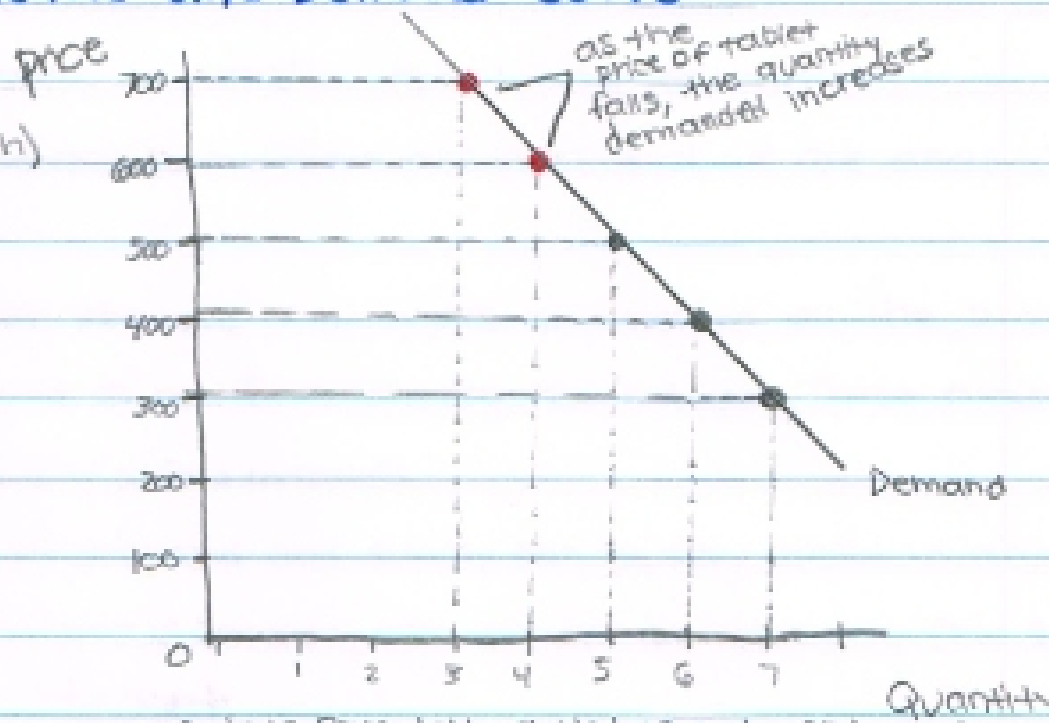 price
as the
price of tablet
falls, the quantity
demanded increases
700
h)
600
500
400
300
200
Demand
100
0
1 2 3 4 5 6 7
Quantity